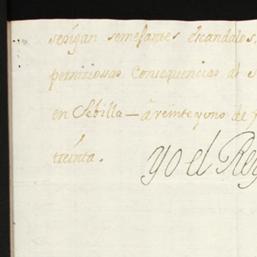 sesigan semejantes escandalos,
perniziosas Consequencias de
en Sebilla — â veinte y uno de
treinta.
Yo el Rey